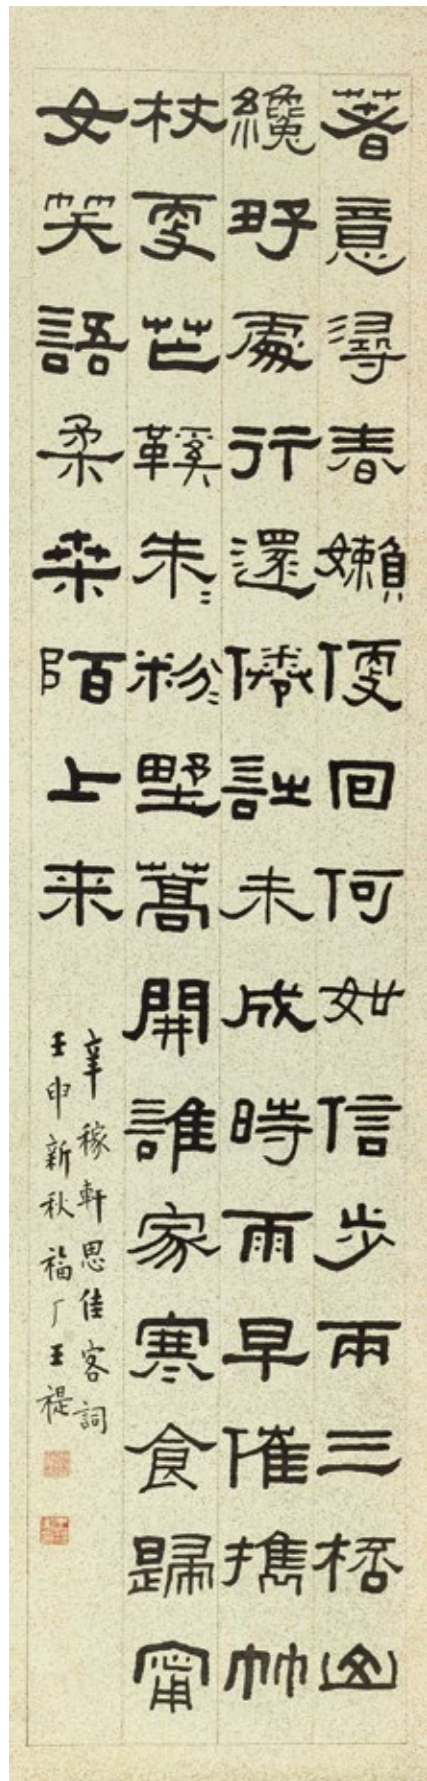 著意尋春嬾便回何如信步兩三桮山
纔好處行還倦詩未成時雨早催攜竹
杖更芒鞵朱〻粉〻墅蒿開誰家寒食歸甯
女笑語柔桒陌上来
辛稼軒思佳客詞
壬申新秋福厂王禔